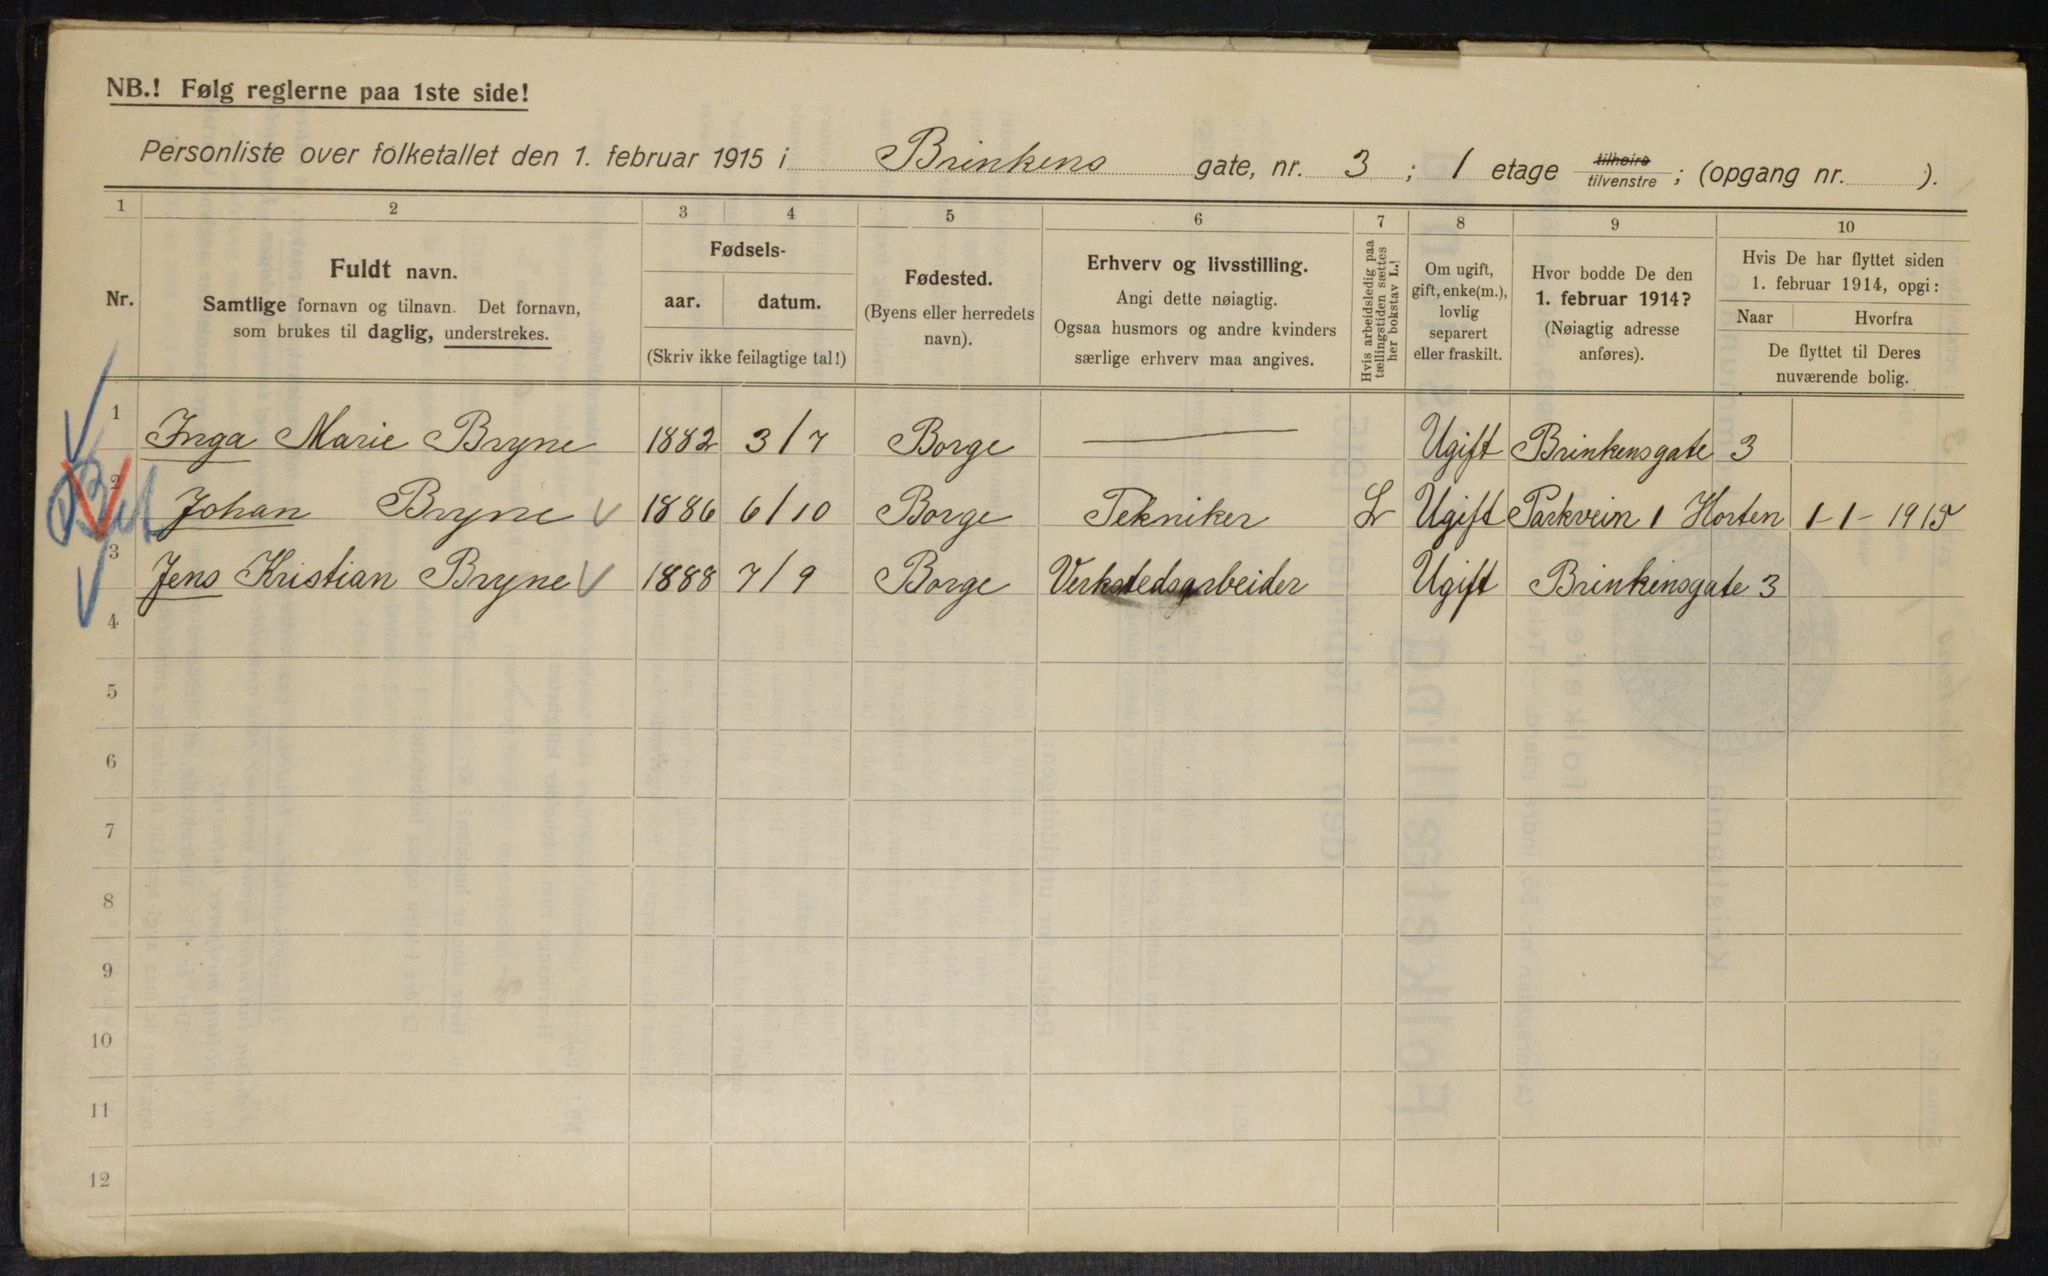 NB.! Følg reglerne paa 1ste side!
Personliste over folketallet den 1. februar 1915 i Brinkens gate, nr. 3 ; 1 etage tilhøire tilvenstre ; (opgang nr. ).
1 2 3 4 5 6 7 8 9 10
Nr.
Fuldt navn.
Samtlige fornavn og tilnavn. Det fornavn,
som brukes til daglig, understrekes.
Fødsels-
aar. datum.
(Skriv ikke feilagtige tal!)
Fødested.
(Byens eller herredets
navn).
Erhverv og livsstilling.
Angi dette nøiagtig.
Ogsaa husmors og andre kvinders
særlige erhverv maa angives.
Hvis arbeidsledig paa
tællingstiden sættes
her bokstav L.!
Om ugift,
gift, enke(m.),
lovlig
separert
eller fraskilt.
Hvor bodde De den
1. februar 1914?
(Nøiagtig adresse
anføres).
Hvis De har flyttet siden
1. februar 1914, opgi:
Naar Hvorfra
De flyttet til Deres
nuværende bolig.
1 Inga Marie Bryne 1882 3/7 Borge — Ugift Brinkensgate 3
2 Johan Bryne 1886 6/10 Borge Tekniker L Ugift Parkvein 1 Horten 1-1-1915
3 Jens Kristian Bryne 1888 7/9 Borge Verkstedsarbeider Ugift Brinkensgate 3
4
5
6
7
8
9
10
11
12